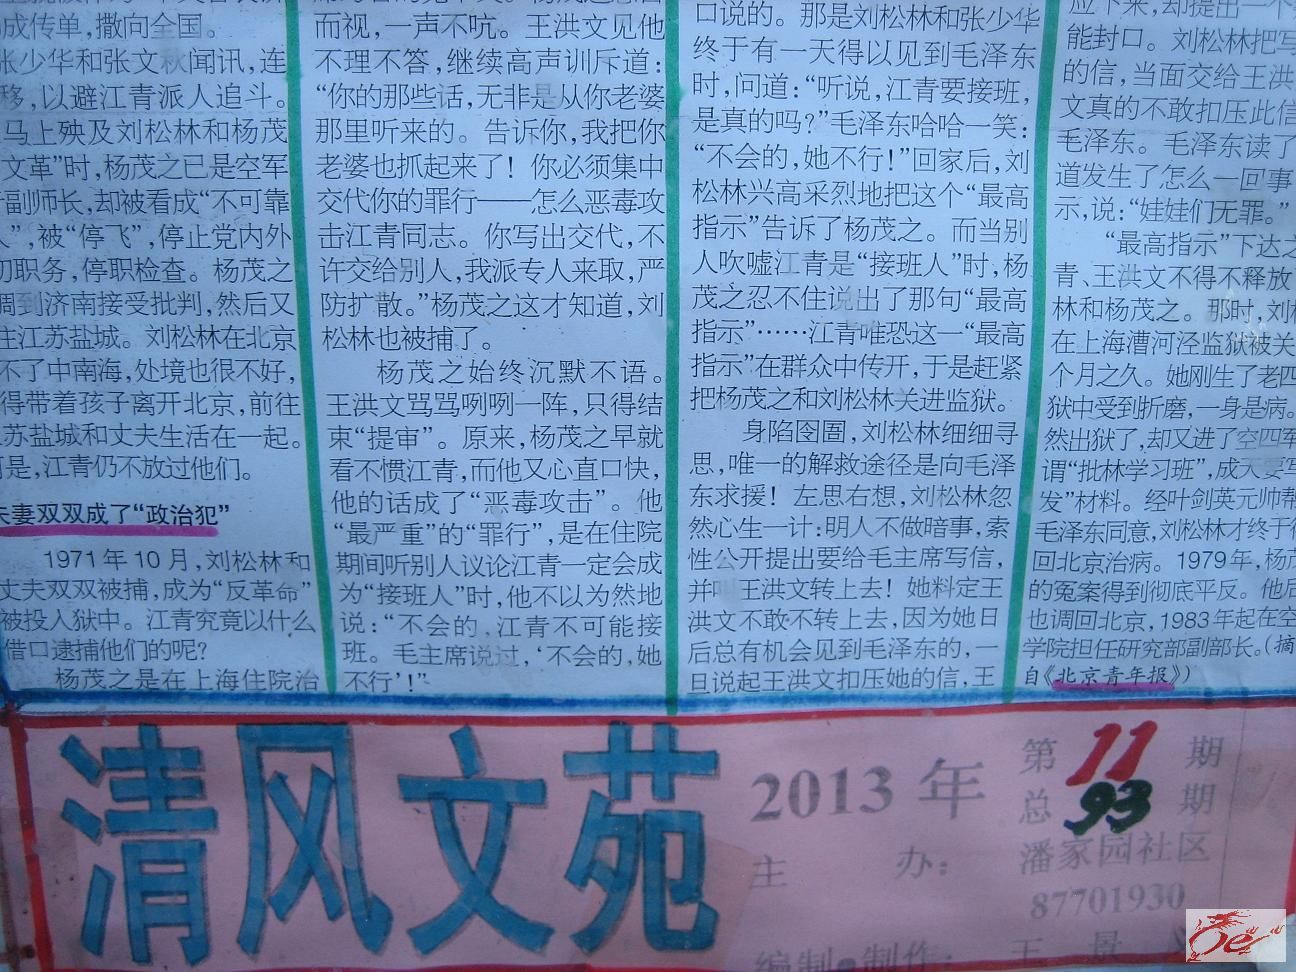 成传单,撒向全国。
张少华和张文秋闻讯,连
移,以避江青派人追斗。
马上殃及刘松林和杨茂
文革”时,杨茂之已是空军
副师长,却被看成“不可靠
”,被“停飞”,停止党内外
切职务,停职检查。杨茂之
调到济南接受批判,然后又
住江苏盐城。刘松林在北京
不了中南海,处境也很不好,
得带着孩子离开北京,前往
苏盐城和丈夫生活在一起。
是,江青仍不放过他们。
夫妻双双成了“政治犯”
1971年10月,刘松林和
丈夫双双被捕,成为“反革命”
被投入狱中。江青究竟以什么
借口逮捕他们的呢?
杨茂之是在上海住院治
而视,一声不吭。王洪文见他
不理不答,继续高声训斥道:
“你的那些话,无非是从你老婆
那里听来的。告诉你,我把你
老婆也抓起来了!你必须集中
交代你的罪行——怎么恶毒攻
击江青同志。你写出交代,不
许交给别人,我派专人来取,严
防扩散。”杨茂之这才知道,刘
松林也被捕了。
杨茂之始终沉默不语。
王洪文骂骂咧咧一阵,只得结
束“提审”。原来,杨茂之早就
看不惯江青,而他又心直口快,
他的话成了“恶毒攻击”。他
“最严重”的“罪行”,是在住院
期间听别人议论江青一定会成
为“接班人”时,他不以为然地
说:“不会的,江青不可能接
班。毛主席说过,‘不会的,她
不行’!”
口说的。那是刘松林和张少华
终于有一天得以见到毛泽东
时,问道:“听说,江青要接班,
是真的吗?”毛泽东哈哈一笑:
“不会的,她不行!”回家后,刘
松林兴高采烈地把这个“最高
指示”告诉了杨茂之。而当别
人吹嘘江青是“接班人”时,杨
茂之忍不住说出了那句“最高
指示”……江青唯恐这一“最高
指示”在群众中传开,于是赶紧
把杨茂之和刘松林关进监狱。
身陷囹圄,刘松林细细寻
思,唯一的解救途径是向毛泽
东求援!左思右想,刘松林忽
然心生一计:明人不做暗事,索
性公开提出要给毛主席写信,
并叫王洪文转上去!她料定王
洪文不敢不转上去,因为她日
后总有机会见到毛泽东的,一
旦说起王洪文扣压她的信,王
应下来,却提出一个
能封口。刘松林把写
的信,当面交给王洪
文真的不敢扣压此信
毛泽东。毛泽东读了
道发生了怎么一回事
示,说:“娃娃们无罪。”
“最高指示”下达之
青、王洪文不得不释放
林和杨茂之。那时,刘松
在上海漕河泾监狱被关
个月之久。她刚生了老四
狱中受到折磨,一身是病。
然出狱了,却又进了空四军
谓“批林学习班”,成天要写
发”材料。经叶剑英元帅帮
毛泽东同意,刘松林才终于得
回北京治病。1979年,杨茂
的冤案得到彻底平反。他后
也调回北京,1983年起在空
学院担任研究部副部长。(摘
自《北京青年报》)
清风文苑
2013年
第11期
总93期
主办:
潘家园社区
87701930
编制●制作:王景